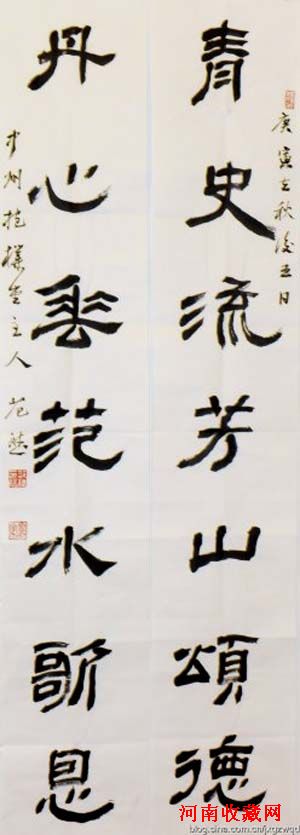 庚寅立秋後五日
青史流芳山頌德
丹心垂范水歌恩
中州抱樸堂主人 范
河南收藏网
blog.sina.com.cn/fjxgzwqd